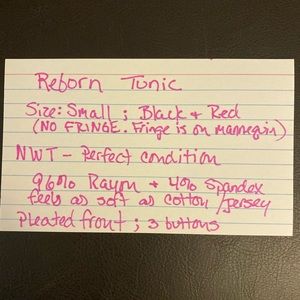 Reborn Tunic
Size: Small ; Black + Red
(NO FRINGE. Fringe is on mannequin)
NWT - Perfect condition
96% Rayon + 4% Spandex
feels as soft as cotton/jersey
Pleated front ; 3 buttons